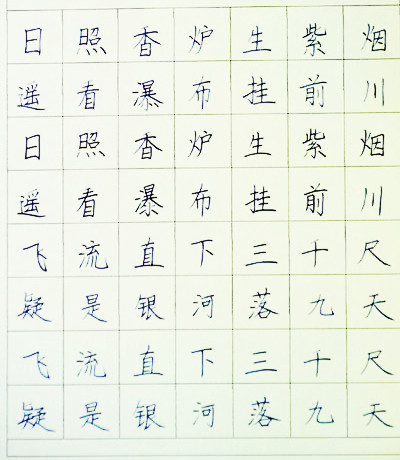 日照香炉生紫烟
遥看瀑布挂前川
日照香炉生紫烟
遥看瀑布挂前川
飞流直下三十尺
疑是银河落九天
飞流直下三十尺
疑是银河落九天